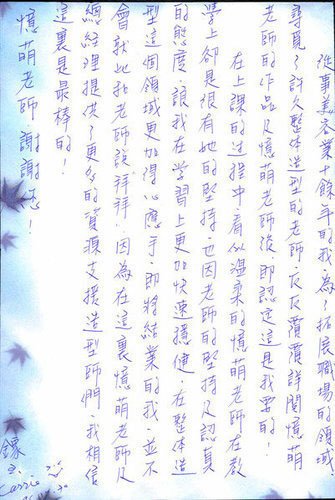 從事美容業十餘年的我,為了拓展職場的領域
尋覓了許久整體造型的老師,反反覆覆詳閱憶萌
老師的作品及憶萌老師後,即認定這是我要的!
在上課的過程中看似溫柔的憶萌老師在教
學上卻是很有她的堅持,也因老師的堅持及認真
的態度讓我在學習上更加快速穩健,在整體造
型這個領域更加得心應手,即將結業的我,並不
會就此和老師說拜拜,因為在這裏憶萌老師及
總經理提供了更多的資源支援造型師們,我相信
這裏是最棒的!
憶萌老師謝謝您!
Cassie